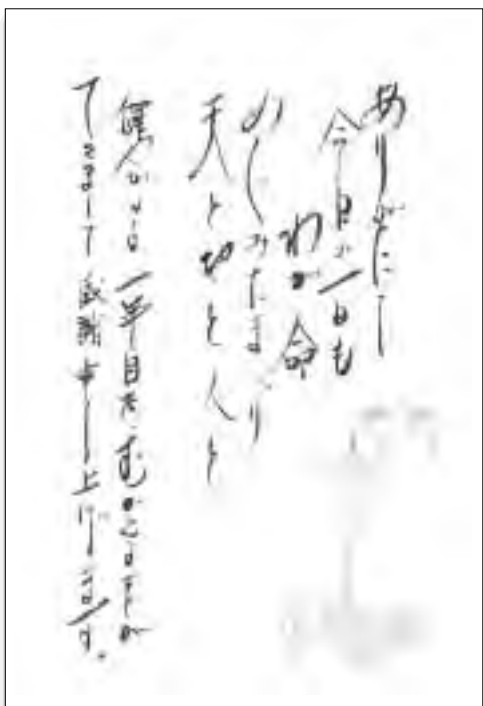 ありがたし
今日の一日も
わが命
めぐみたまへり
天と地と人と
一年目をむかえることが
できまして 感謝申し上げます。